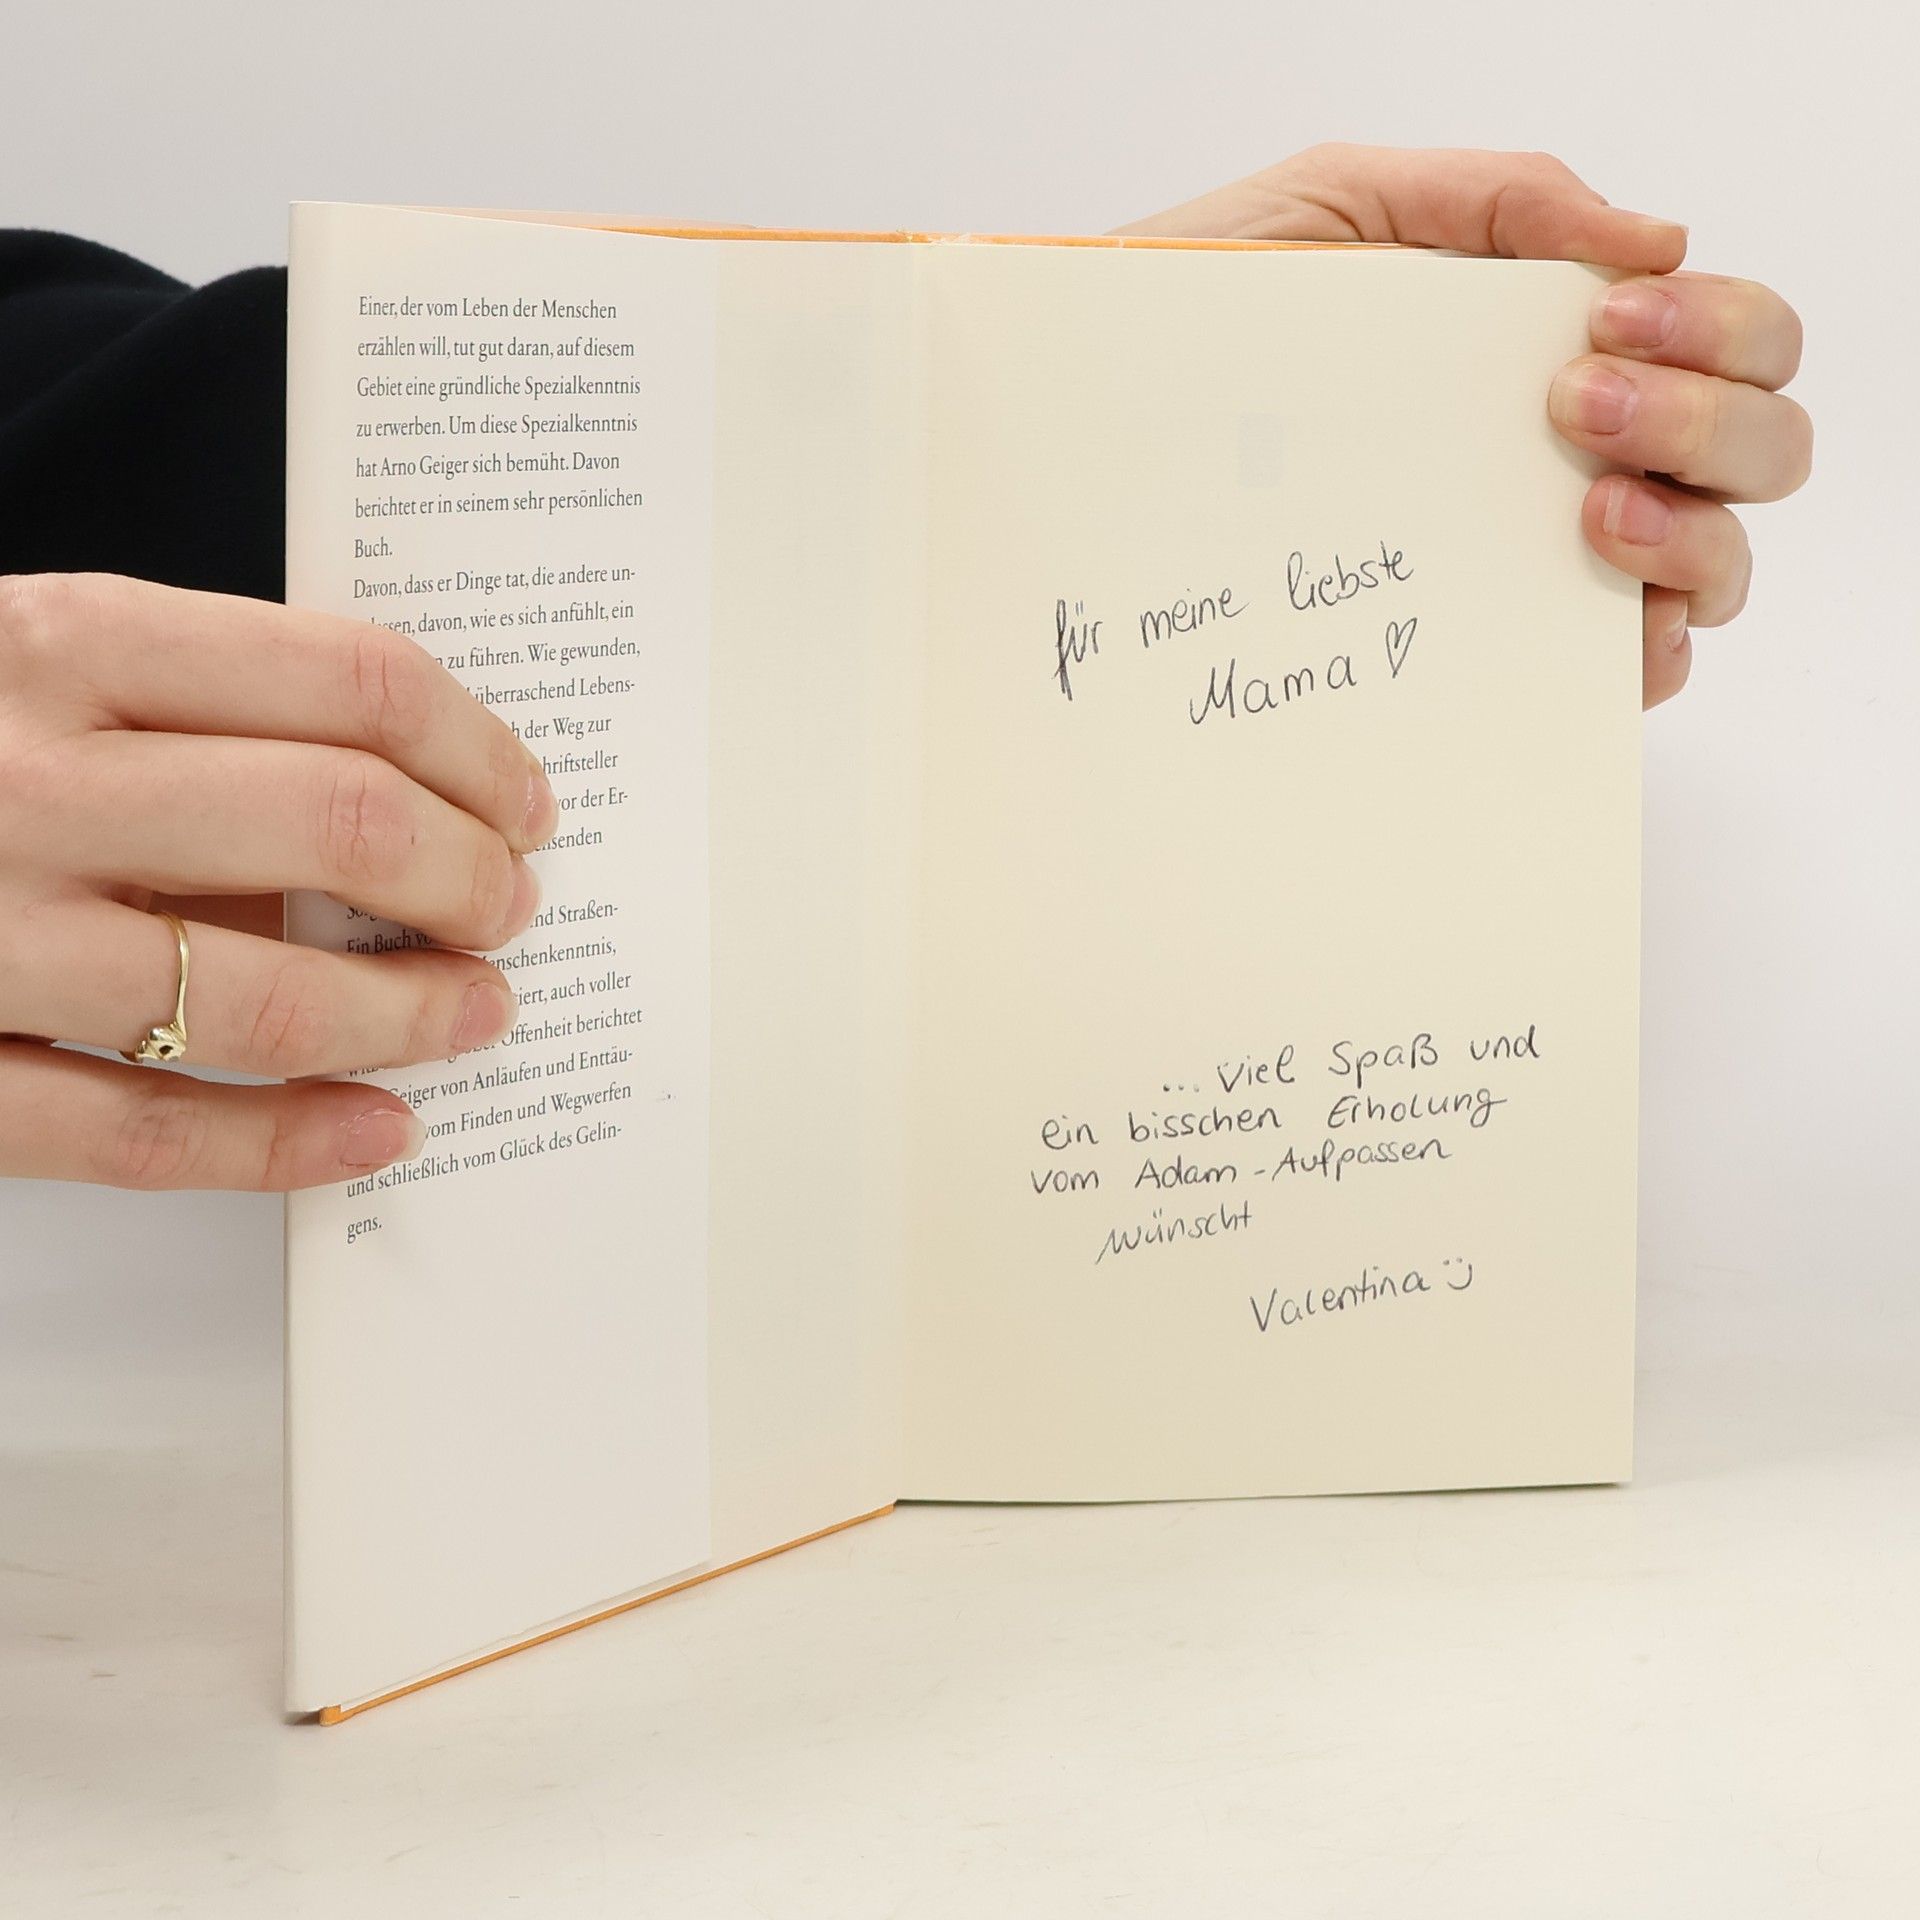 Einer, der vom Leben der Menschen
erzählen will, tut gut daran, auf diesem
Gebiet eine gründliche Spezialkenntnis
zu erwerben. Um diese Spezialkenntnis
hat Arno Geiger sich bemüht. Davon
berichtet er in seinem sehr persönlichen
Buch.
Davon, dass er Dinge tat, die andere un-
davon, wie es sich anfühlt, ein
zu führen. Wie gewunden,
überraschend Lebens-
der Weg zur
vor der Er-
Straßen-
Ein Buch
auch voller
Offenheit berichtet
Geiger von Anläufen und Enttäu-
vom Finden und Wegwerfen
und schließlich vom Glück des Gelin-
gens.
für meine liebste
Mama ♡
... viel Spaß und
ein bisschen Erholung
vom Adam-Aufpassen
wünscht
Valentina ☺